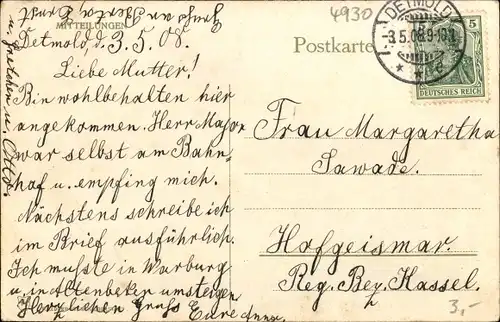 4930
MITTEILUNGEN
Detmold, d. 3.5.08.
Liebe Mutter!
Bin wohlbehalten hier
angekommen. Herr Major
war selbst am Bahn-
hof u. empfing mich.
Nächstens schreibe ich
im Brief ausführlich.
Ich mußte in Warburg
u. in Altenbeken umsteigen
Herzlichen Gruß Eure Anna.
u. Gretchen u. Otto.
Postkarte
DETMOLD
-3.5.08.9-10
5
DEUTSCHES REICH
Frau Margaretha
Sawade.
Hofgeismar.
Reg. Bez. Kassel.
3,-